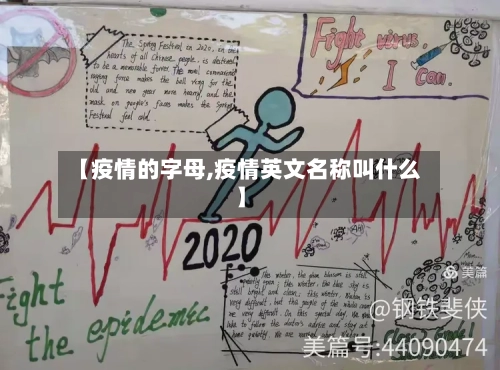 The Spring Festival in 2020, in the
hearts of all Chinese people, is destined
to be a memorable fever. The most
raging force makes the bell ring for the
old and new year more heavy, and the
mask on people's faces makes the Spring
Festival feel cold.
Fight virus,
I Can.
【疫情的字母,疫情英文名称叫什么
】
2020
this winter, the plum blossom is still
this winter, the blue sky is
still bright and clear, this winter, Wuhan is
very difficult, but the people of the whole
are very difficult. On this special day, We
take to follow the doctor's advice and stay at
home quietly. We are
Fight
the epidemic
美篇
@钢铁斐侠
美篇号:44090474